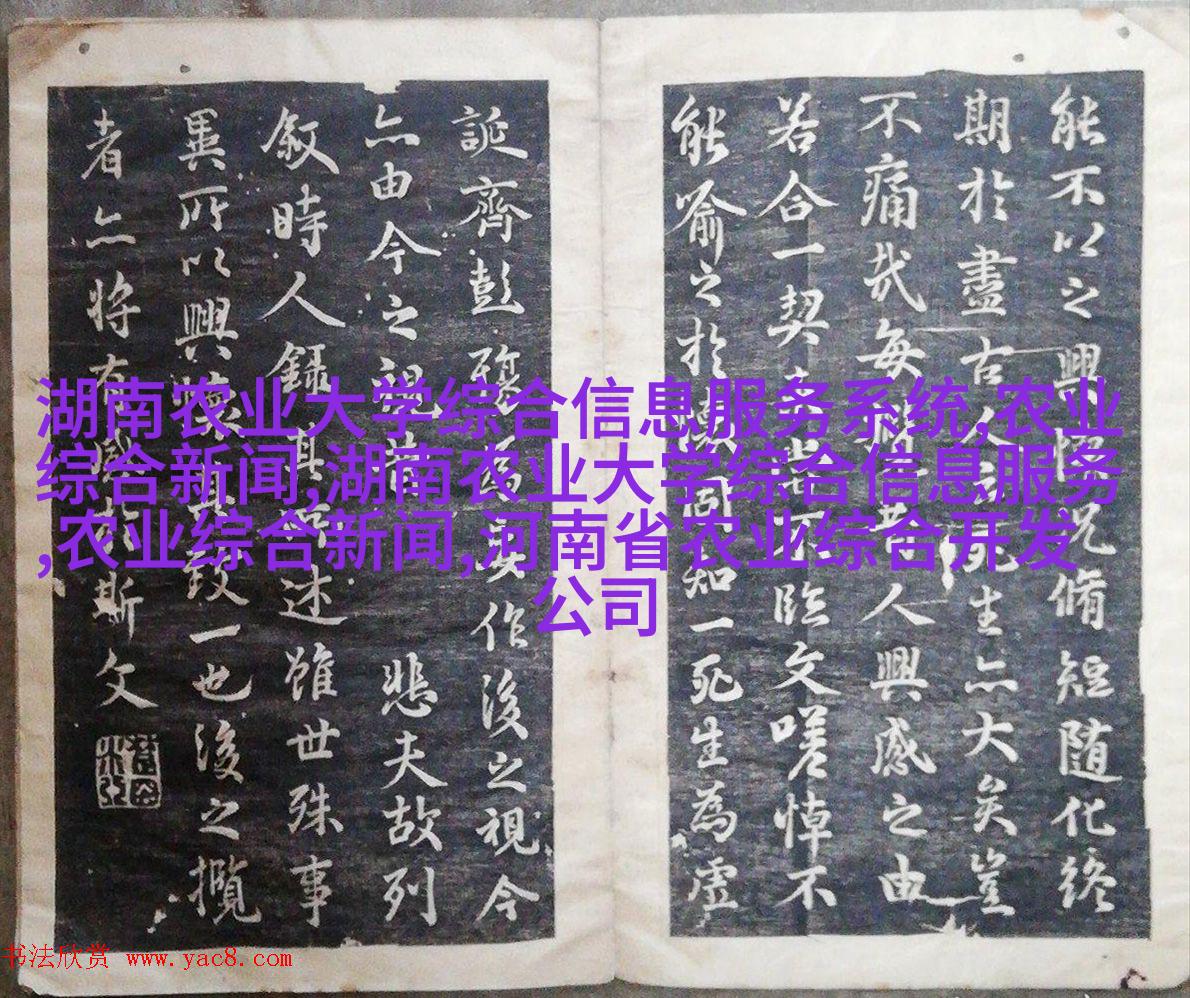 能不以之興懷況脩短随化終
期於盡古人云死生亦大矣豈
不痛哉每攬昔人興感之由
若合一契未嘗不臨文嗟悼不
能喻之於懷固知一死生為虛
誕齊彭殤為妄作後之視今
亦由今之視昔 悲夫故列
叙時人錄其所述雖世殊事
異所以興懷其致一也後之攬
者亦将有感於斯文
湖南农业大学综合信息服务系统,农业
综合新闻,湖南农业大学综合信息服务
,农业综合新闻,河南省农业综合开发
公司
书法欣赏 www.yac8.com